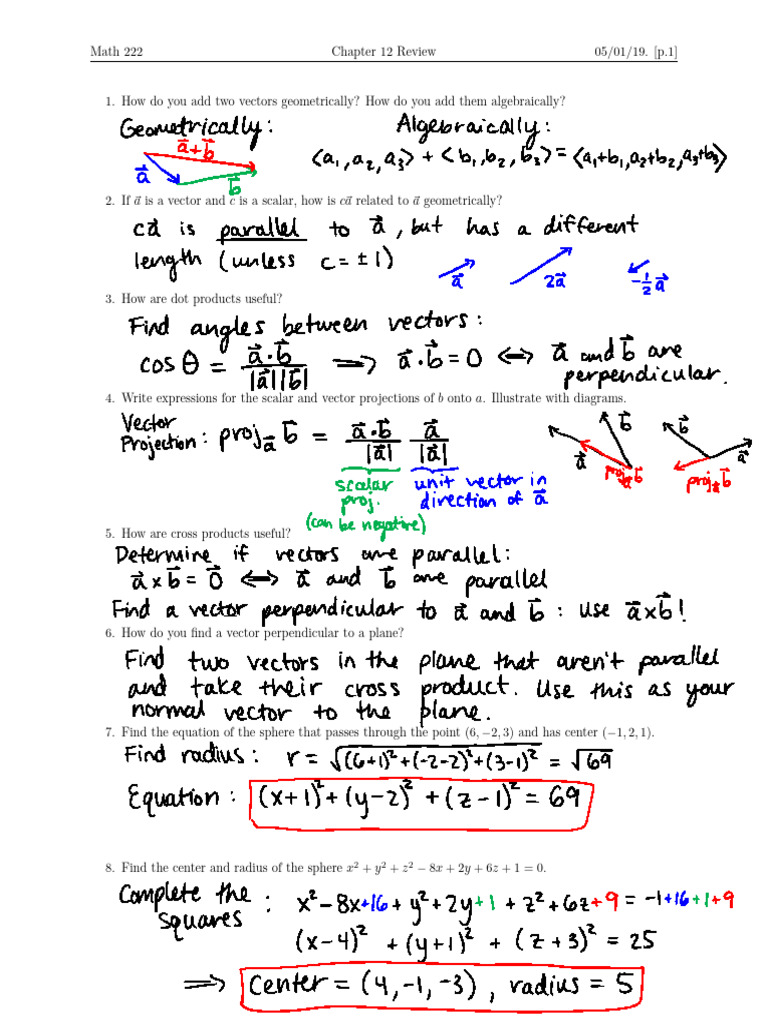 Math 222 Chapter 12 Review 05/01/19. [p.1]
1. How do you add two vectors geometrically? How do you add them algebraically?
Geometrically: Algebraically:
a⃗+b⃗
a⃗
b⃗
⟨a₁, a₂, a₃⟩ + ⟨b₁, b₂, b₃⟩ = ⟨a₁+b₁, a₂+b₂, a₃+b₃⟩
2. If a⃗ is a vector and c is a scalar, how is ca⃗ related to a⃗ geometrically?
ca⃗ is parallel to a⃗, but has a different
length (unless c = ±1)
a⃗ 2a⃗ -½a⃗
3. How are dot products useful?
Find angles between vectors:
cos θ = a⃗·b⃗ / |a⃗||b⃗| ⟹ a⃗·b⃗ = 0 ⟺ a⃗ and b⃗ are
perpendicular.
4. Write expressions for the scalar and vector projections of b onto a. Illustrate with diagrams.
Vector
Projection: proj_a⃗ b⃗ = a⃗·b⃗ / |a⃗| a⃗ / |a⃗|
scalar
proj.
(can be negative)
unit vector in
direction of a⃗
b⃗
a⃗
proj_a⃗ b⃗
b⃗
a⃗
proj_a⃗ b⃗
5. How are cross products useful?
Determine if vectors are parallel:
a⃗×b⃗ = 0⃗ ⟺ a⃗ and b⃗ are parallel
Find a vector perpendicular to a⃗ and b⃗: Use a⃗×b⃗!
6. How do you find a vector perpendicular to a plane?
Find two vectors in the plane that aren't parallel
and take their cross product. Use this as your
normal vector to the plane.
7. Find the equation of the sphere that passes through the point (6, −2, 3) and has center (−1, 2, 1).
Find radius: r = √((6+1)²+(-2-2)²+(3-1)²) = √69
Equation: (x+1)²+(y-2)²+(z-1)² = 69
8. Find the center and radius of the sphere x² + y² + z² − 8x + 2y + 6z + 1 = 0.
Complete the
squares : x²-8x+16+y²+2y+1+z²+6z+9 = -1+16+1+9
(x-4)² + (y+1)² + (z+3)² = 25
⟹ Center = (4,-1,-3), radius = 5